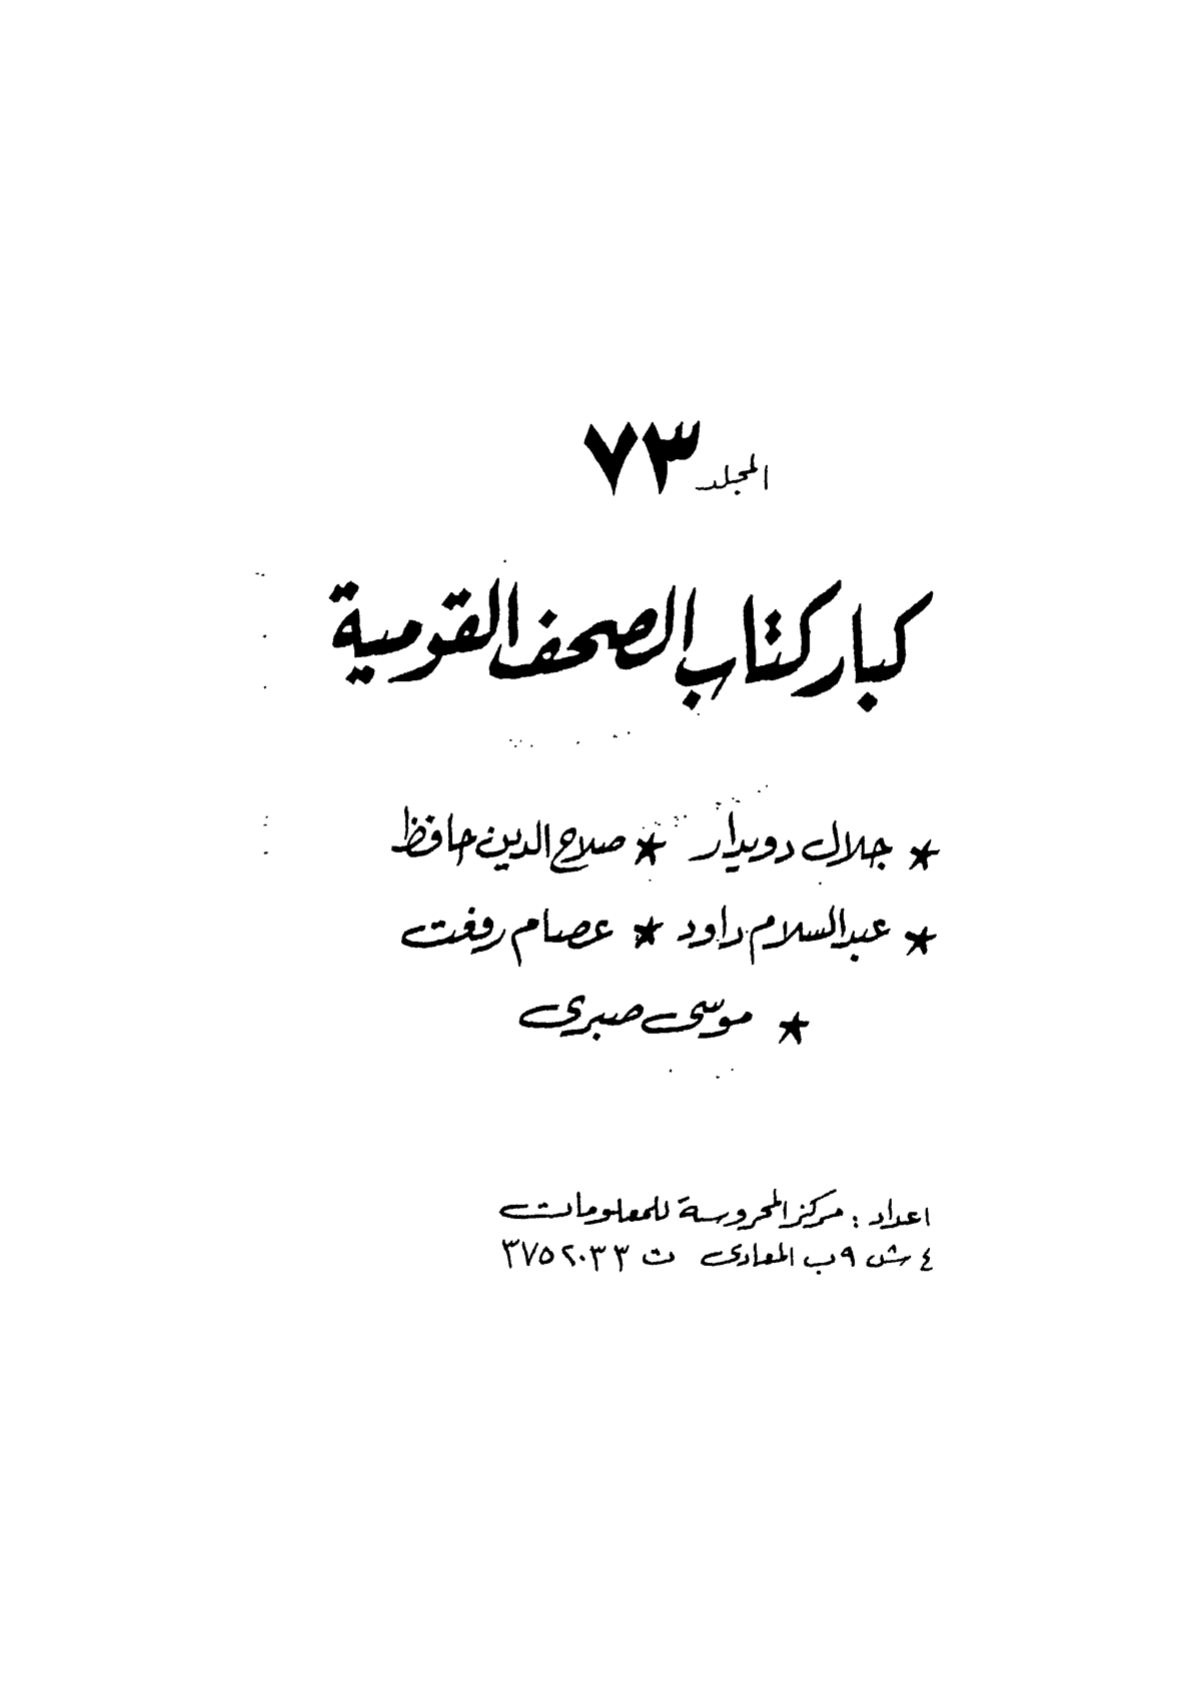 المجلد ٧٣
كبار كتاب الصحف القومية
* جلال دويدار * صلاح الدين حافظ
* عبد السلام داود * عصام رفعت
* موسى صبرى
اعداد : مركز المحروسة للمعلومات
٤ ش ٩ ب المعادى ت ٣٧٥٢٠٣٣